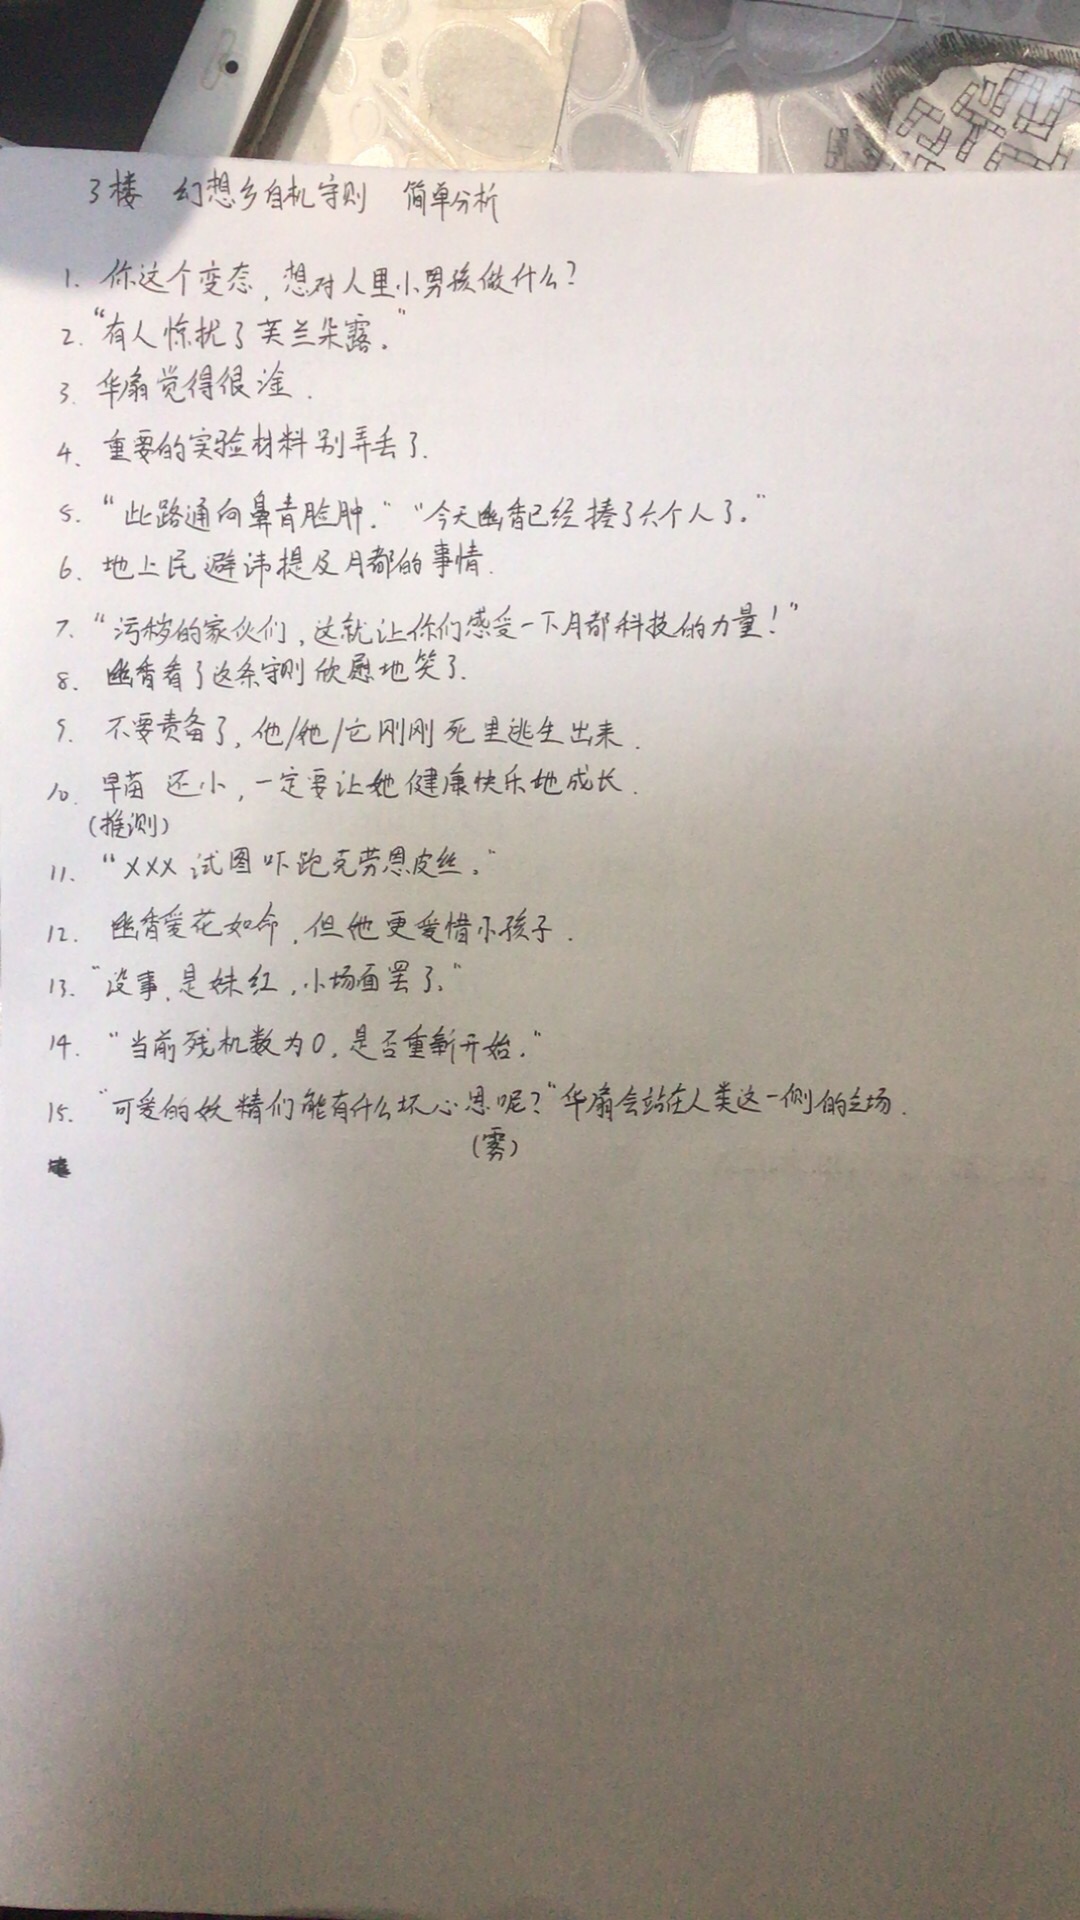 3楼 幻想乡自机守则 简单分析
1. 你这个变态,想对人里小男孩做什么?
2. “有人惊扰了芙兰朵露。”
3. 华扇觉得很淦.
4. 重要的实验材料别弄丢了.
5. “此路通向鼻青脸肿.”“今天幽香已经揍了六个人了。”
6. 地上民避讳提及月都的事情.
7. “污秽的家伙们,这就让你们感受一下月都科技的力量!”
8. 幽香看了这条守则欣慰地笑了.
9. 不要责备了,他/她/它刚刚死里逃生出来.
10. 早苗还小,一定要让她健康快乐地成长.
(推测)
11. “XXX试图吓跑克劳恩皮丝。”
12. 幽香爱花如命,但她更爱惜小孩子.
13. “没事,是妹红,小场面罢了。”
14. “当前残机数为0,是否重新开始.”
15. “可爱的妖精们能有什么坏心思呢?”华扇会站在人类这一侧的立场.
(雾)